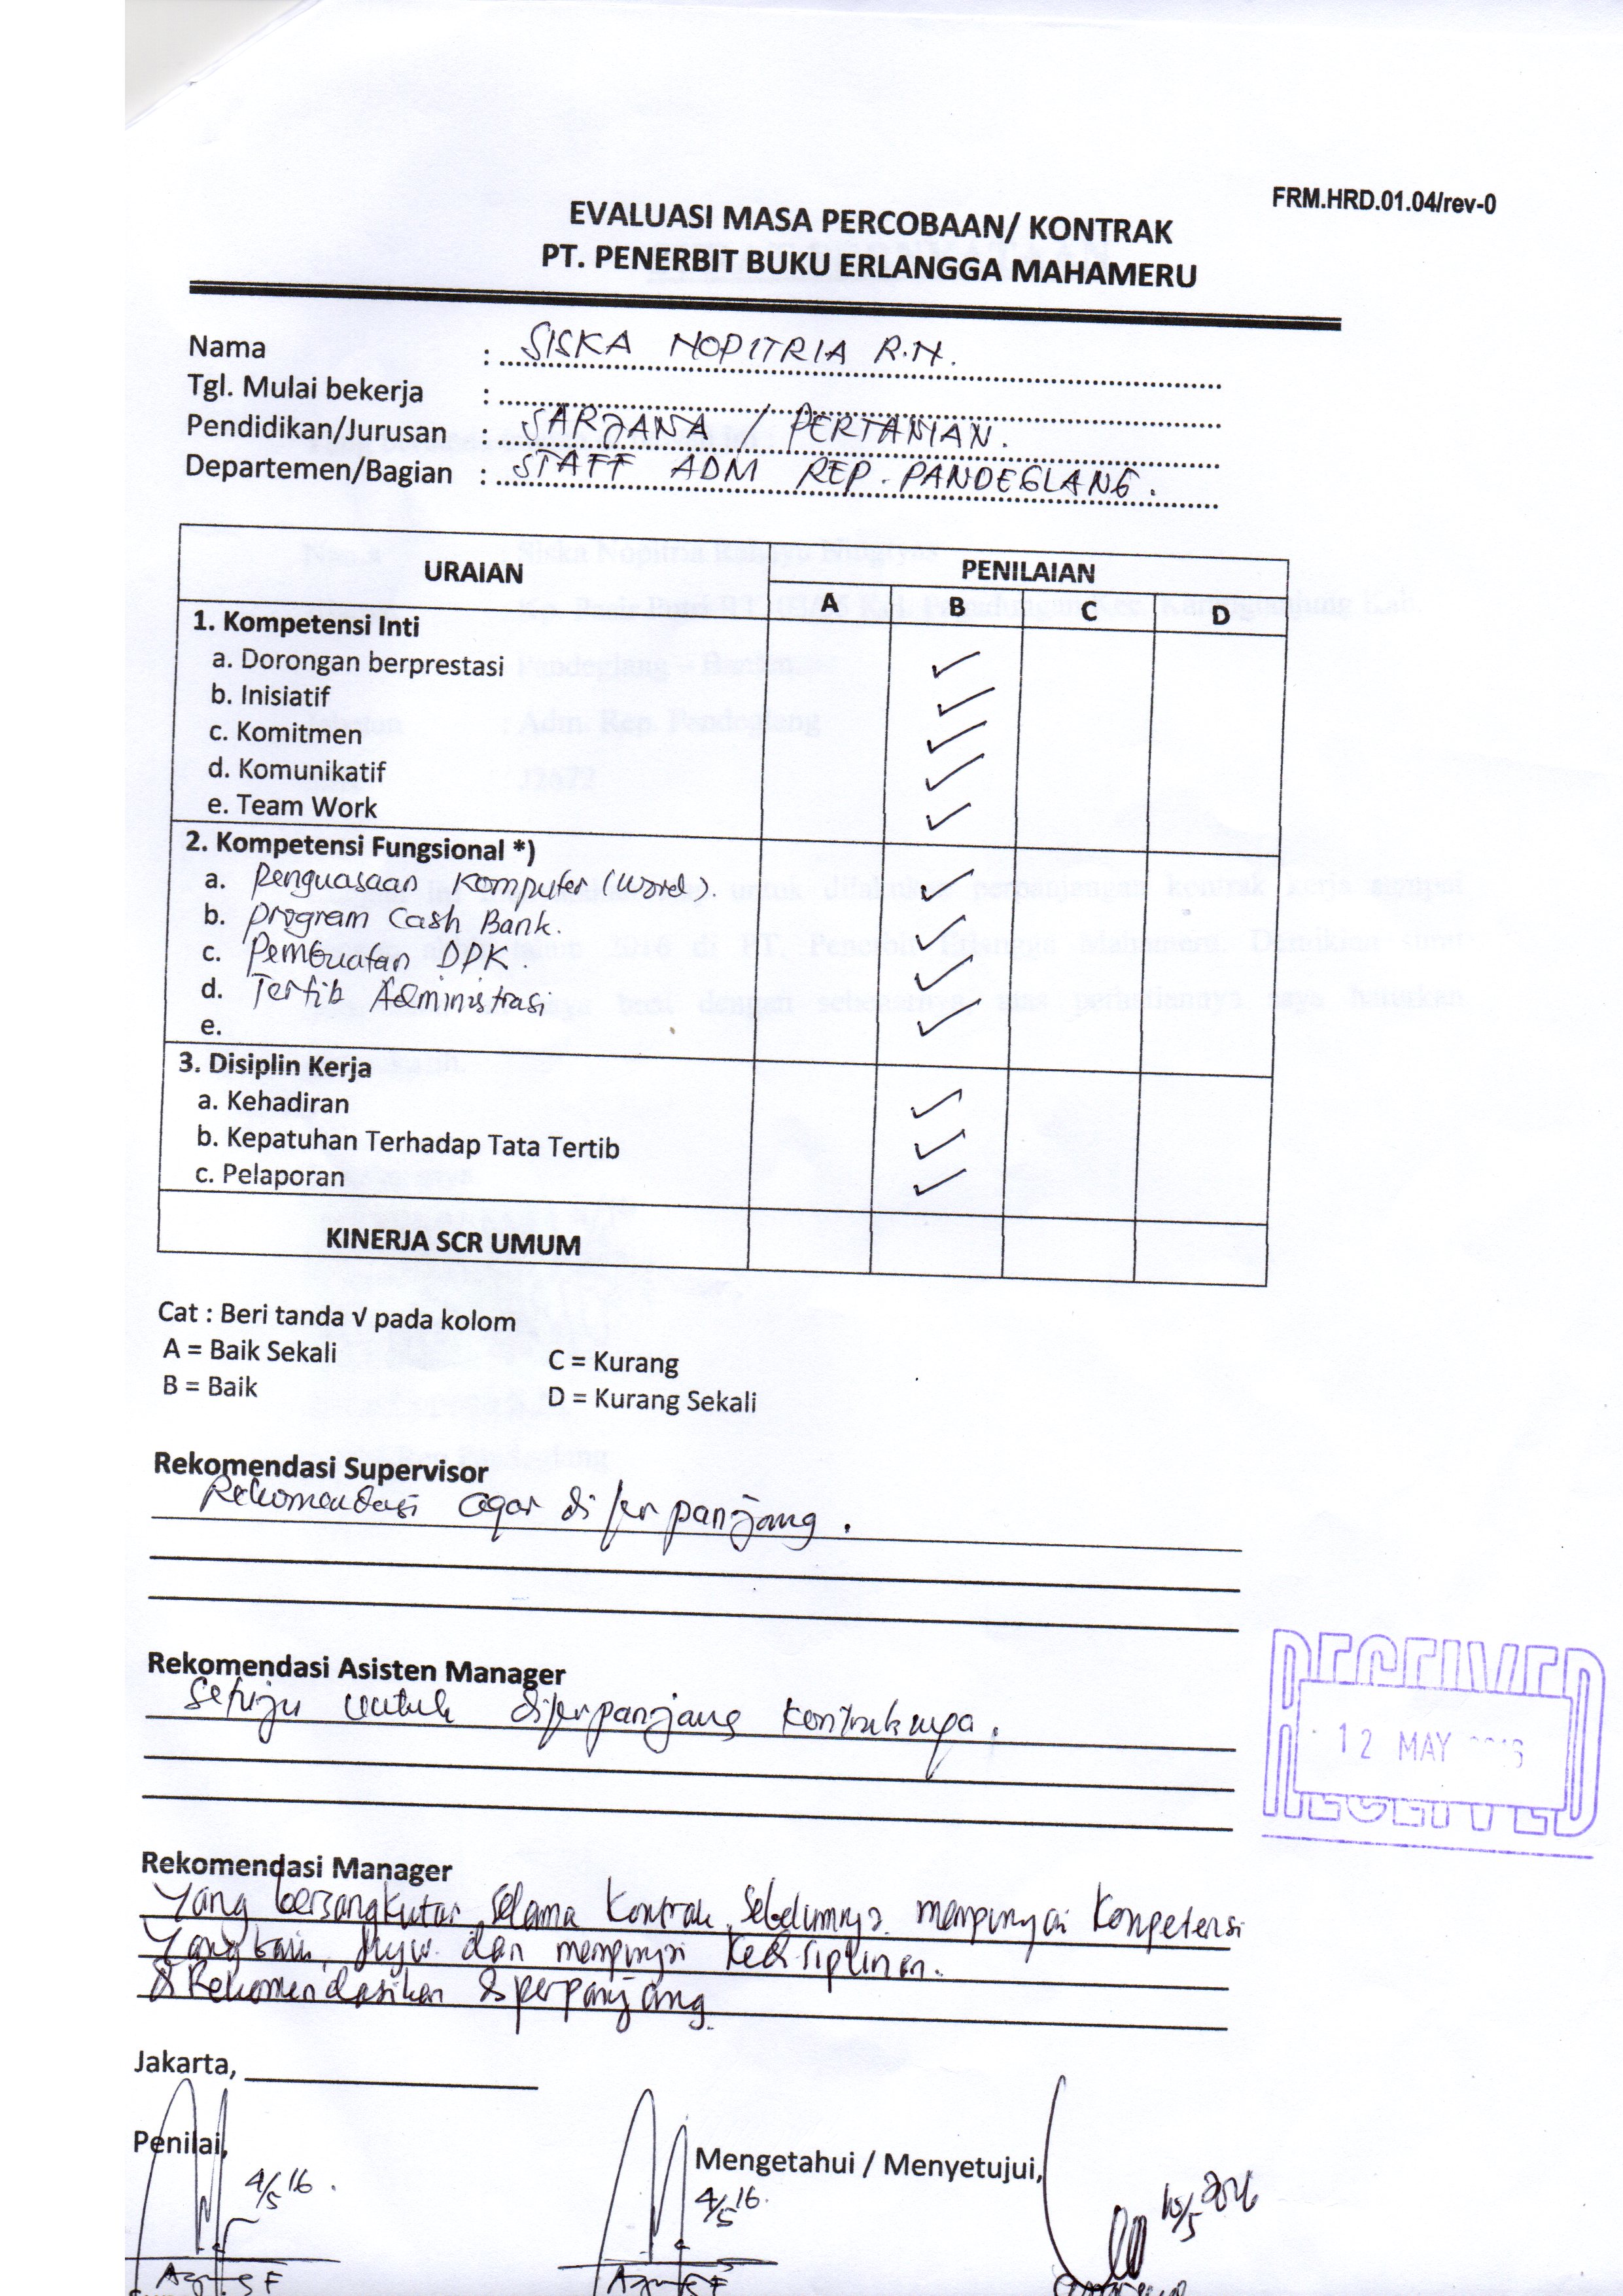 FRM.HRD.01.04/rev-0
EVALUASI MASA PERCOBAAN/ KONTRAK
PT. PENERBIT BUKU ERLANGGA MAHAMERU
Nama : SISKA NOPITRIA R.N.
Tgl. Mulai bekerja :
Pendidikan/Jurusan : SARJANA / PERTANIAN.
Departemen/Bagian : STAFF ADM REP. PANDEGLANG.
URAIAN PENILAIAN
A B C D
1. Kompetensi Inti
a. Dorongan berprestasi ✓
b. Inisiatif ✓
c. Komitmen ✓
d. Komunikatif ✓
e. Team Work ✓
2. Kompetensi Fungsional *)
a. Penguasaan Komputer (Word). ✓
b. Program Cash Bank. ✓
c. Pembuatan DPK. ✓
d. Tertib Administrasi ✓
e.
3. Disiplin Kerja
a. Kehadiran ✓
b. Kepatuhan Terhadap Tata Tertib ✓
c. Pelaporan ✓
KINERJA SCR UMUM
Cat : Beri tanda √ pada kolom
A = Baik Sekali C = Kurang
B = Baik D = Kurang Sekali
Rekomendasi Supervisor
Rekomendasi agar diperpanjang.
Rekomendasi Asisten Manager
Setuju untuk diperpanjang kontraknya.
RECEIVED
12 MAY
RECEIVED
Rekomendasi Manager
Yang bersangkutan selama kontrak sebelumnya mempunyai kompetensi
yang baik, dan mempunyai kedisiplinan.
di Rekomendasikan diperpanjang.
Jakarta,
Penilai, Mengetahui / Menyetujui,
4/5 16. 4/5 16. 10/5 2016
Agus F Agus F